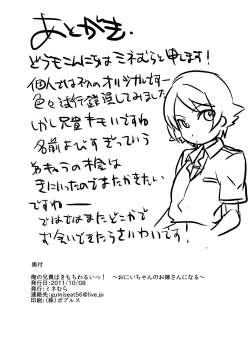 あとがき.
どうもこんにちは ミネむらと申します!
個人では初のオリジナルですー
色々試行錯誤してみました
しかし兄貴キモいですね
名前よびすぎっていう
きにいったのでまたかきたい
ですねー
ではではまたどこかで
お会いできたらさいわいです!
奥付
俺の兄貴はきもちわるいっ! ～おにいちゃんのお嫁さんになる～
発行日:2011/10/08
発行:ミネむら
連絡先:gumiseat56@live.jp
印刷:(株)ポプルス